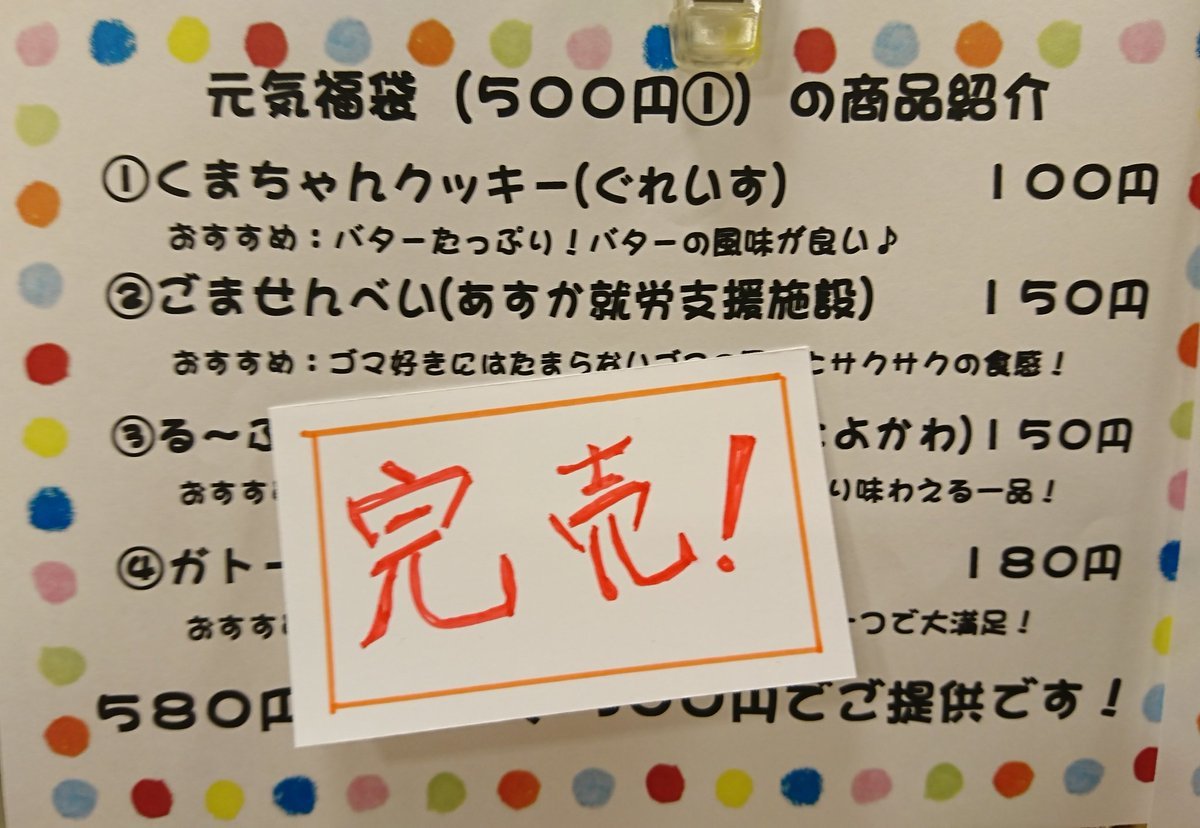 元気福袋(500円①)の商品紹介
①くまちゃんクッキー(ぐれいす) 100円
おすすめ：バターたっぷり！バターの風味が良い♪
②ごませんべい(あすか就労支援施設) 150円
おすすめ：ゴマ好きにはたまらない サクサクの食感！
③る～ よかわ)150円
おすす り味わえる一品！
④ガトー 180円
おすす つで大満足！
580円 00円でご提供です！
完売！